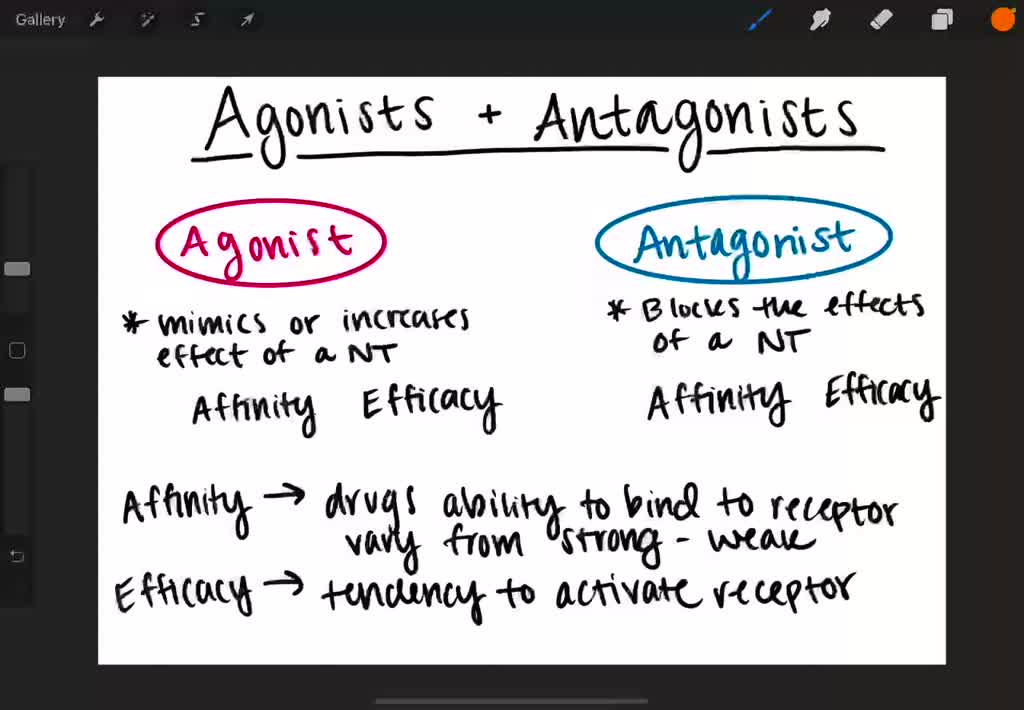 Gallery
Agonists + Antagonists
Agonist
Antagonist
* mimics or increases
effect of a NT
* Blocks the effects
of a NT
Affinity Efficacy
Affinity Efficacy
Affinity → drugs ability to bind to receptor
vary from strong - weak
Efficacy → tendency to activate receptor